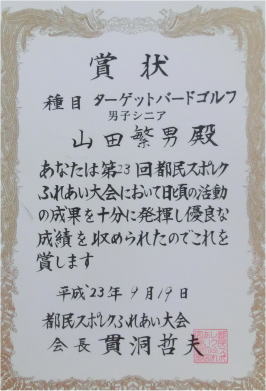 賞状
種目 ターゲットバードゴルフ
男子シニア
山田繁男 殿
あなたは第23回都民スポレク
ふれあい大会において日頃の活動
の成果を十分に発揮し優良な
成績を収められたのでこれを
賞します
平成23年9月19日
都民スポレクふれあい大会
会長 貫洞哲夫